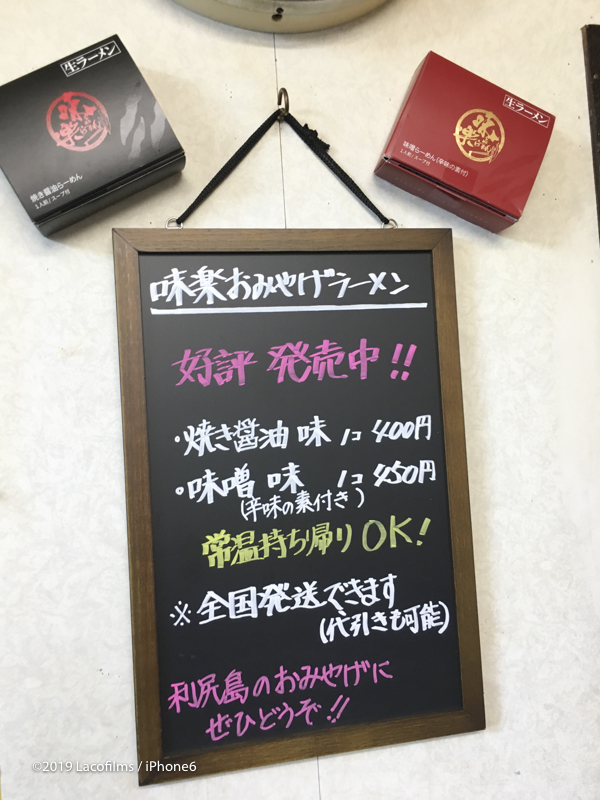 生ラーメン
味楽らーめん
焼き醤油らーめん
1人前/スープ付
生ラーメン
味楽らーめん
味噌らーめん(辛味の素付)
1人前/スープ付
味楽おみやげラーメン
好評 発売中!!
・焼き醤油味 1コ 400円
・味噌味 1コ 450円
(辛味の素付き)
常温持ち帰りOK!
※全国発送できます
(代引きも可能)
利尻島のおみやげに
ぜひどうぞ!!
©2019 Lacofilms / iPhone6